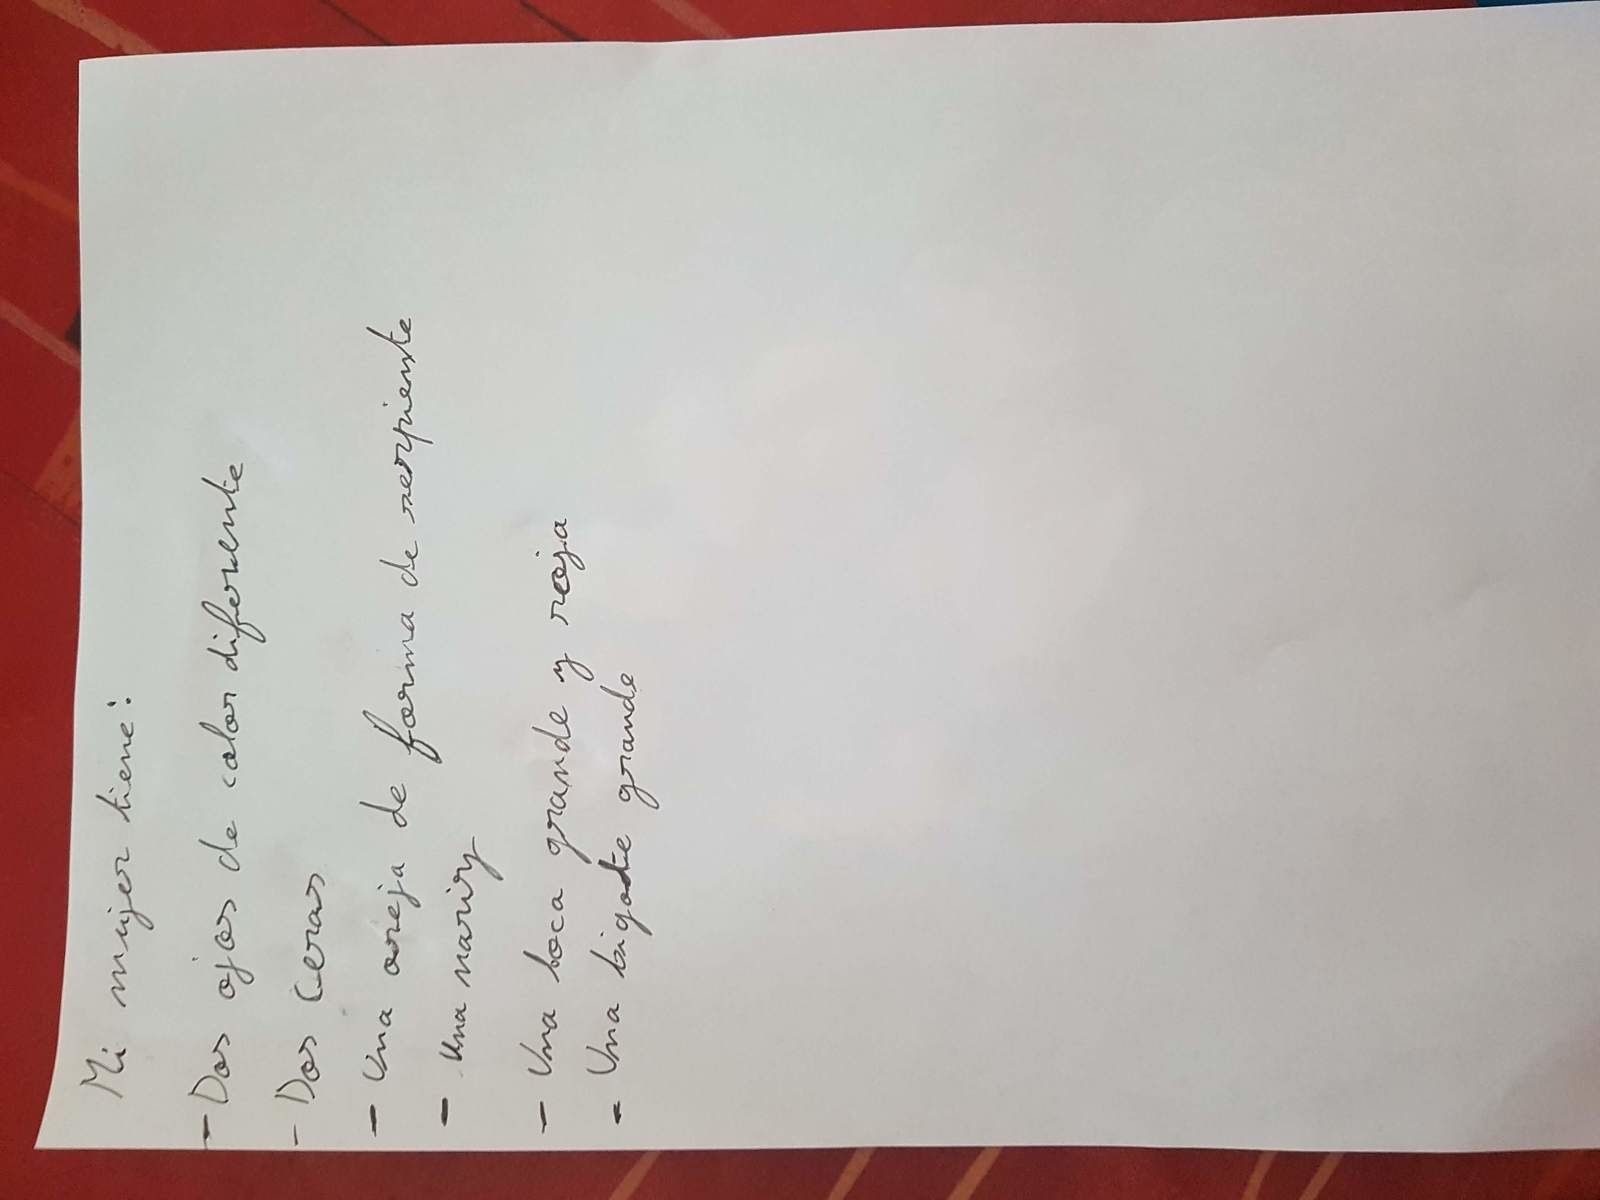 Mi mujer tiene:
- Dos ojos de color diferente
- Dos ceras
- Una oreja de forma de serpiente
- Una nariz
- Una boca grande y roja
- Una bigote grande